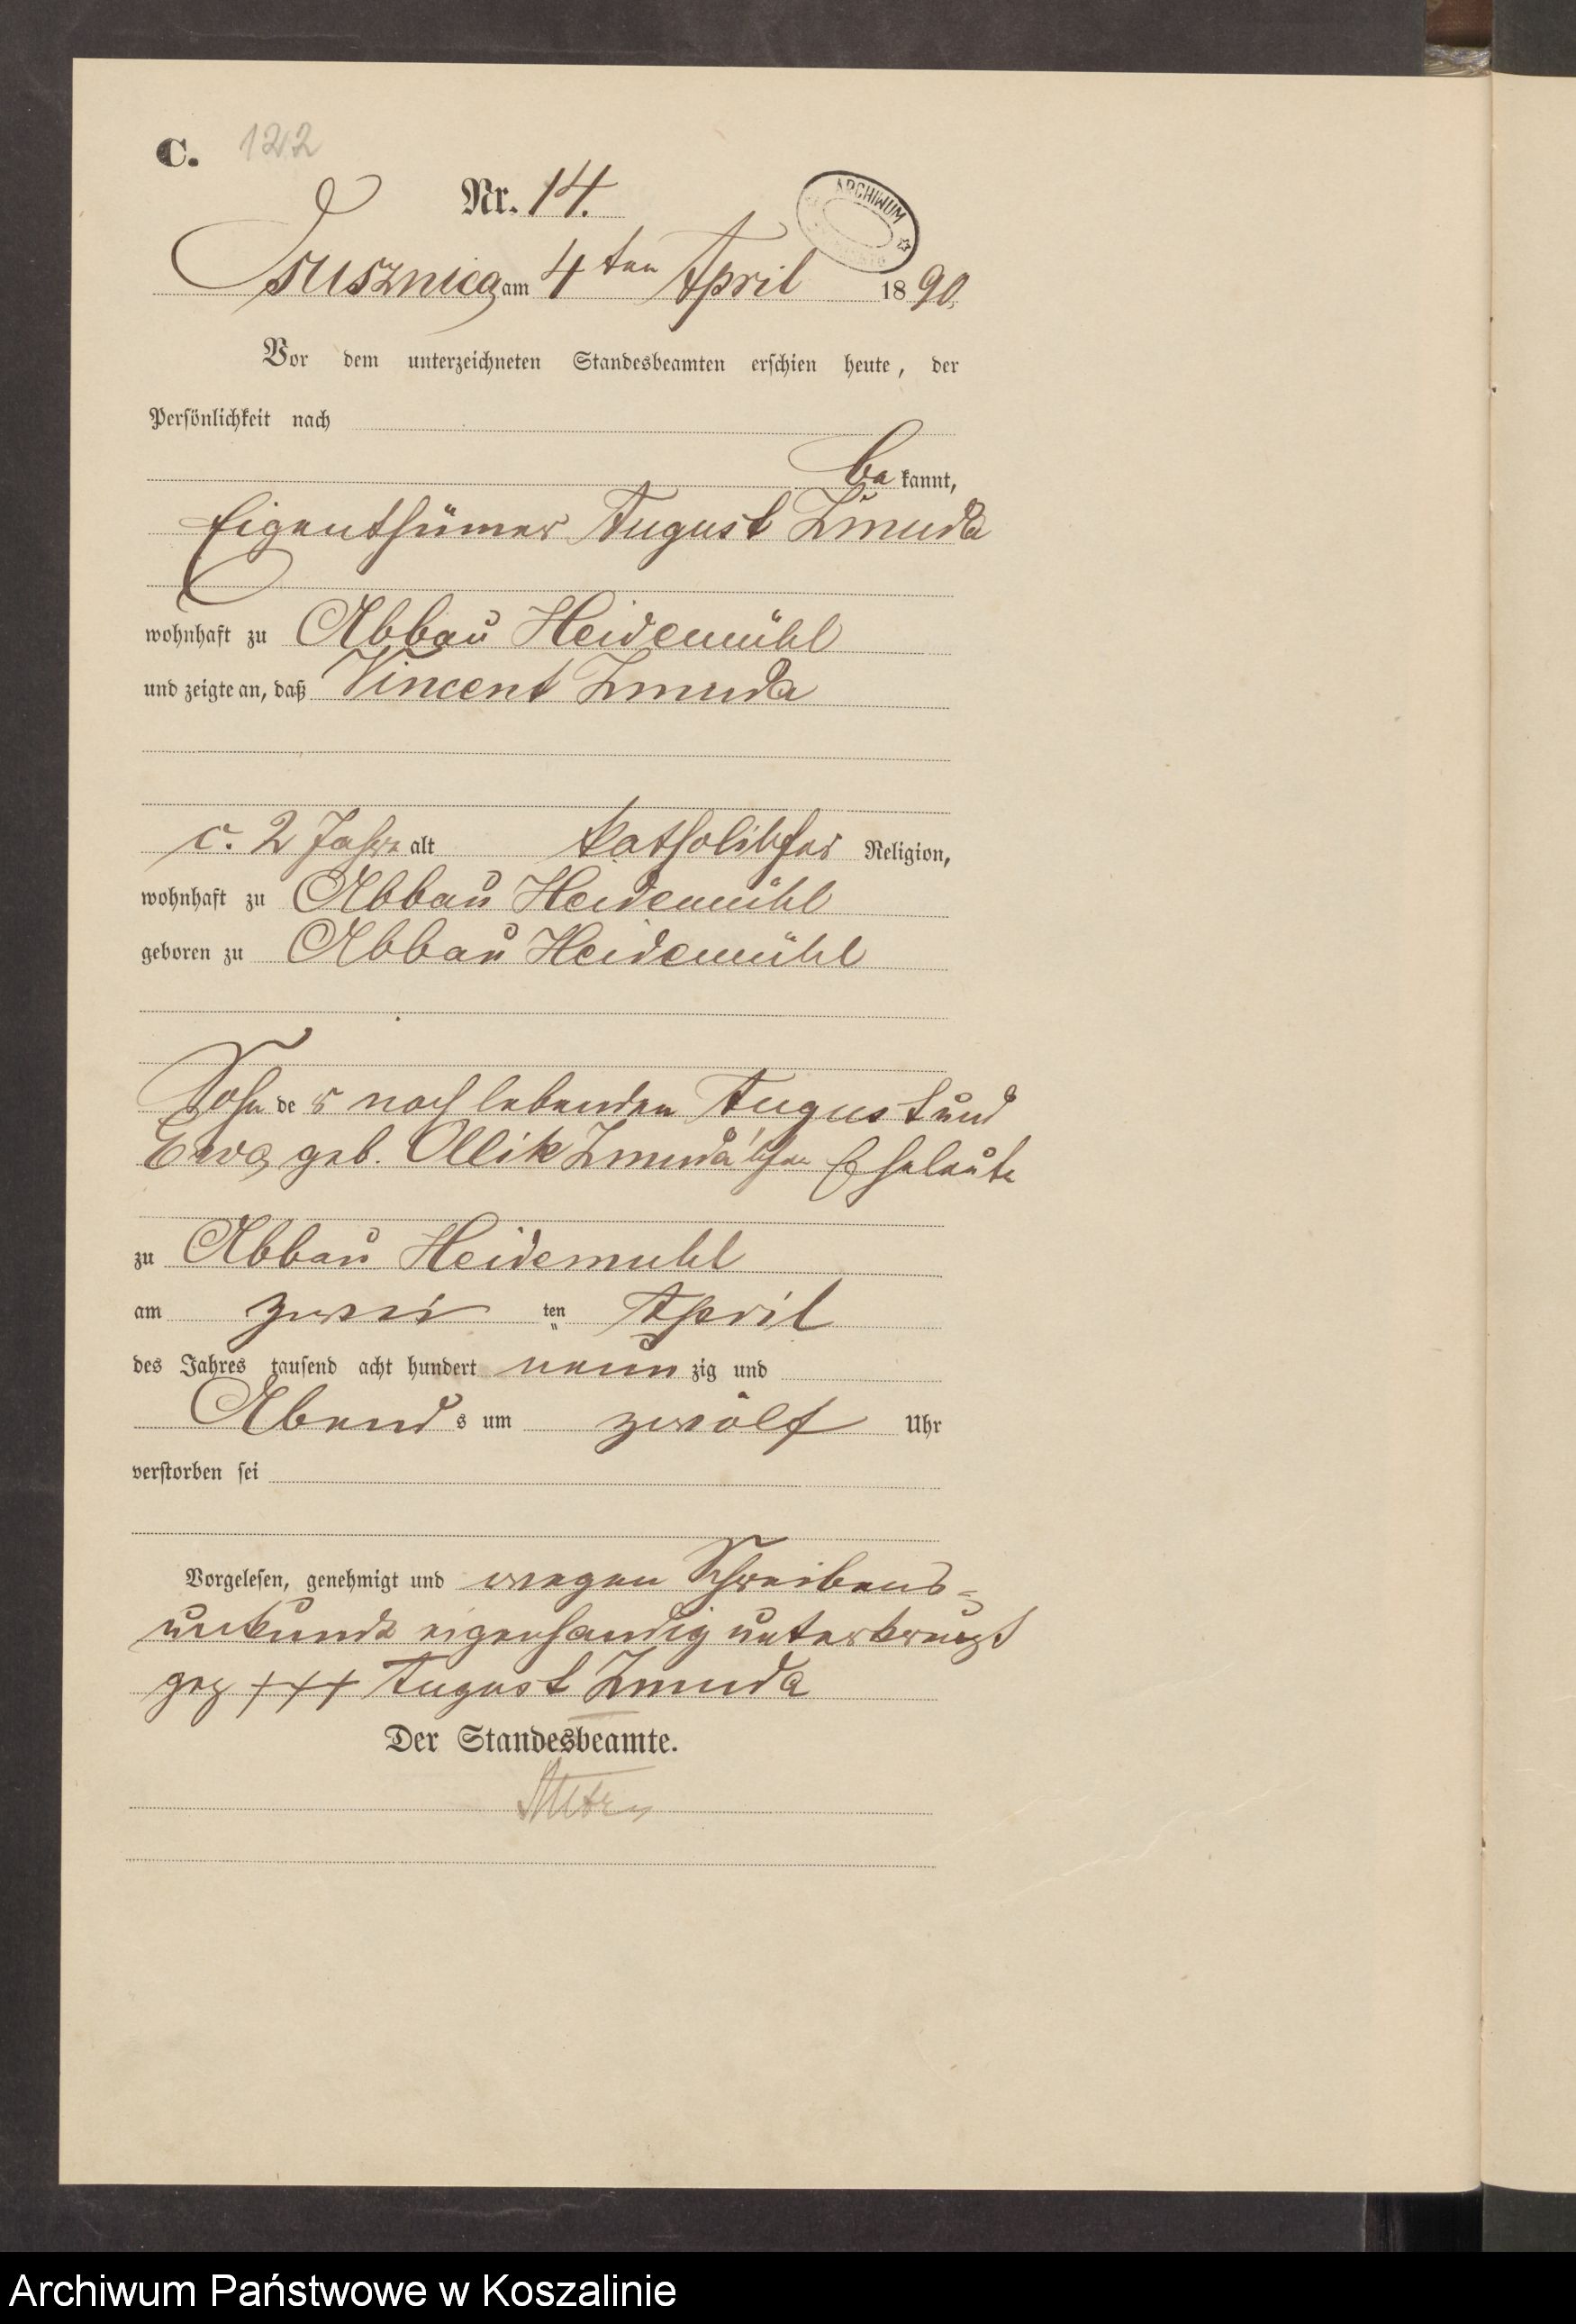 C. 122
Nr. 14.
ARCHIWUM
Brusznica am 4ten April 1890.
Vor dem unterzeichneten Standesbeamten erschien heute, der
Persönlichkeit nach
bekannt,
Eigenthümer August Zmuda
wohnhaft zu Abbau Heidemühl
und zeigte an, daß Vincent Zmuda
c. 2 Jahre alt katholischer Religion,
wohnhaft zu Abbau Heidemühl
geboren zu Abbau Heidemühl
Sohn der noch lebenden August und
Ewa geb. Ollik Zmuda'schen Eheleute
zu Abbau Heidemuhl
am zwei ten April
des Jahres tausend acht hundert neunzig und
Abends um zwölf Uhr
verstorben sei
Vorgelesen, genehmigt und wegen Schreibens-
unkunde eigenhandig unterkreuzt
gez +++ August Zmuda
Der Standesbeamte.
Archiwum Państwowe w Koszalinie